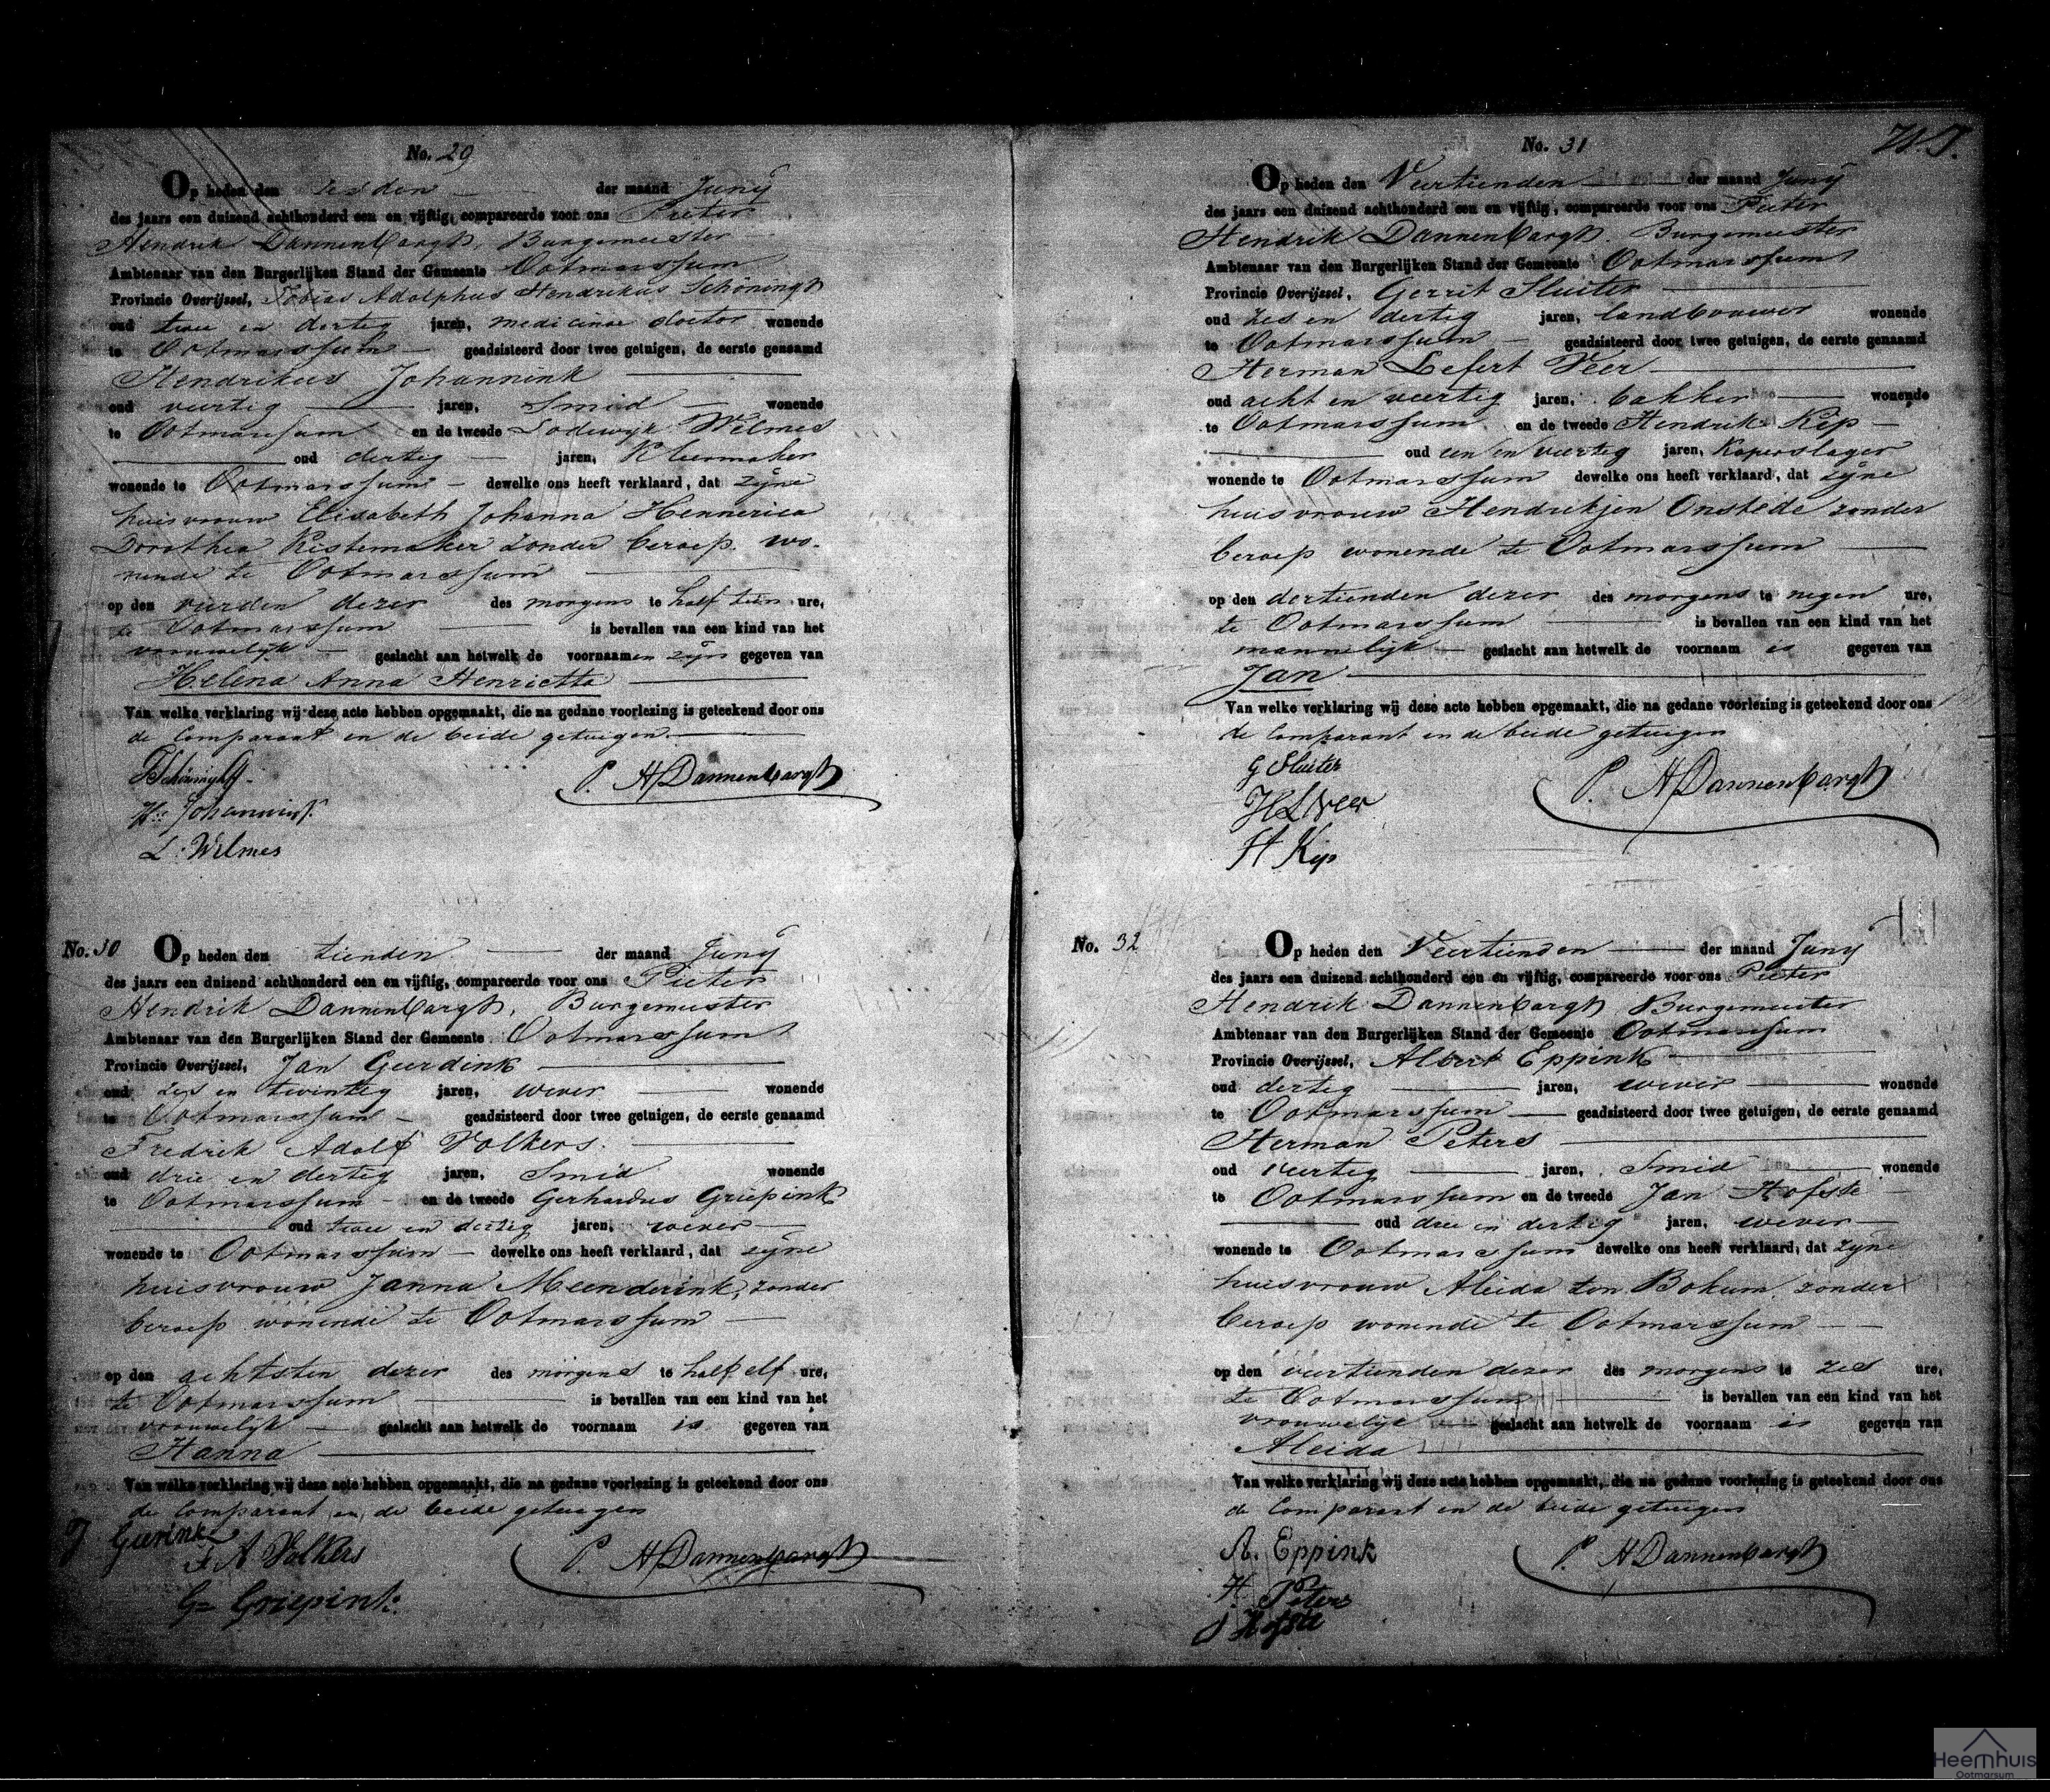 No. 29
Op heden den zesden der maand Juny
des jaars een duizend achthonderd een en vijftig, compareerde voor ons Pieter
Hendrik Dannenbargh, Burgemeester
Ambtenaar van den Burgerlijken Stand der Gemeente Ootmarssum
Provincie Overijssel, Tobias Adolphus Hendrikus Schöningh
oud twee en dertig jaren, medicinae doctor wonende
te Ootmarssum geadsisteerd door twee getuigen, de eerste genaamd
Hendrikus Johannink
oud veertig jaren, Smid wonende
te Ootmarssum en de tweede Lodewyk Wilmes
oud dertig jaren, Kleermaker
wonende te Ootmarssum dewelke ons heeft verklaard, dat zyne
huisvrouw Elisabeth Johanna Hennerica
Dorothea Kistemaker zonder beroep wo-
nende te Ootmarssum
op den vierden dezer des morgens te half tien ure,
te Ootmarssum is bevallen van een kind van het
vrouwelijk geslacht aan hetwelk de voornaamen zijn gegeven van
Helena Anna Henrietta
Van welke verklaring wij deze acte hebben opgemaakt, die na gedane voorlezing is geteekend door ons
de Comparant en de beide getuigen.
P. H Dannenbargh
L. Wilmes
No. 30
Op heden den tienden der maand Juny
des jaars een duizend achthonderd een en vijftig, compareerde voor ons Pieter
Hendrik Dannenbargh, Burgemeester
Ambtenaar van den Burgerlijken Stand der Gemeente Ootmarssum
Provincie Overijssel, Jan Geerdink
oud zes en twintig jaren, wever wonende
te Ootmarssum geadsisteerd door twee getuigen, de eerste genaamd
Fredrik Adolf Volkers
oud drie en dertig jaren, Smid wonende
te Ootmarssum en de tweede Gerhardus Griepink
oud twee en dertig jaren, wever
wonende te Ootmarssum dewelke ons heeft verklaard, dat zyne
huisvrouw Janna Meenderink, zonder
beroep wonende te Ootmarssum
op den achtsten dezer des morgens te half elf ure,
te Ootmarssum is bevallen van een kind van het
vrouwelijk geslacht aan hetwelk de voornaam is gegeven van
Hanna
Van welke verklaring wij deze acte hebben opgemaakt, die na gedane voorlezing is geteekend door ons
de Comparant en de beide getuigen
J Geerink
F A Volkers
P. H Dannenbargh
G= Griepink
No. 31
Op heden den Veertienden der maand Juny
des jaars een duizend achthonderd een en vijftig, compareerde voor ons Pieter
Hendrik Dannenbargh. Burgemeester
Ambtenaar van den Burgerlijken Stand der Gemeente Ootmarssum
Provincie Overijssel, Gerrit Sluiter
oud zes en dertig jaren, landbouwer wonende
te Ootmarssum geadsisteerd door twee getuigen, de eerste genaamd
Herman Lefert Veer
oud acht en veertig jaren, bakker wonende
te Ootmarssum en de tweede Hendrik Kip
oud een en veertig jaren, Koperslager
wonende te Ootmarssum dewelke ons heeft verklaard, dat zyne
huisvrouw Hendrikjen Onstede zonder
beroep wonende te Ootmarssum
op den dertienden dezer des morgens te negen ure,
te Ootmarssum is bevallen van een kind van het
mannelijk geslacht aan hetwelk de voornaam is gegeven van
Jan
Van welke verklaring wij deze acte hebben opgemaakt, die na gedane voorlezing is geteekend door ons
de Comparant en de beide getuigen
G Sluiter
P. H Dannenbargh
H L Veer
H Kip
No. 32
Op heden den Veertienden der maand Juny
des jaars een duizend achthonderd een en vijftig, compareerde voor ons Pieter
Hendrik Dannenbargh Burgemeester
Ambtenaar van den Burgerlijken Stand der Gemeente Ootmarssum
Provincie Overijssel, Albert Eppink
oud dertig jaren, wever wonende
te Ootmarssum geadsisteerd door twee getuigen, de eerste genaamd
Herman Peters
oud veertig jaren, Smid wonende
te Ootmarssum en de tweede Jan Hofste
oud drie en dertig jaren, wever
wonende te Ootmarssum dewelke ons heeft verklaard, dat zyne
huisvrouw Aleida ton Bokum zonder
beroep wonende te Ootmarssum
op den veertienden dezer des morgens te zes ure,
te Ootmarssum is bevallen van een kind van het
vrouwelijk geslacht aan hetwelk de voornaam is gegeven van
Aleida
Van welke verklaring wij deze acte hebben opgemaakt, die na gedane voorlezing is geteekend door ons
de Comparant en de beide getuigen
A. Eppink
P. H Dannenbargh
H. Peters
J Hofste
Heemhuis
Ootmarsum